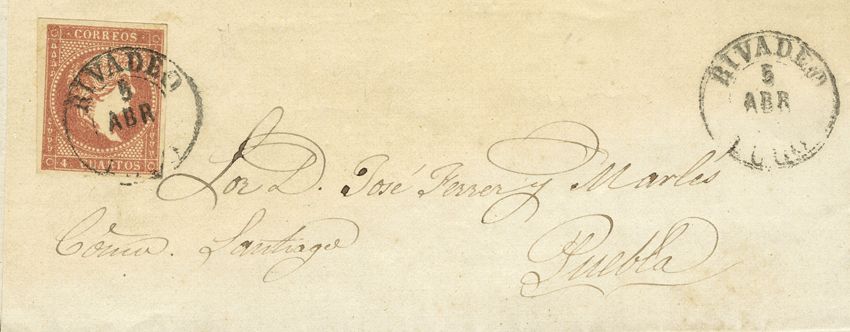 CORREOS
4 CUARTOS
RIVADEO
5
ABR
RIVADEO
5
ABR
LUGO
Sor D. José Ferrer y Martés
Santiago
Puebla